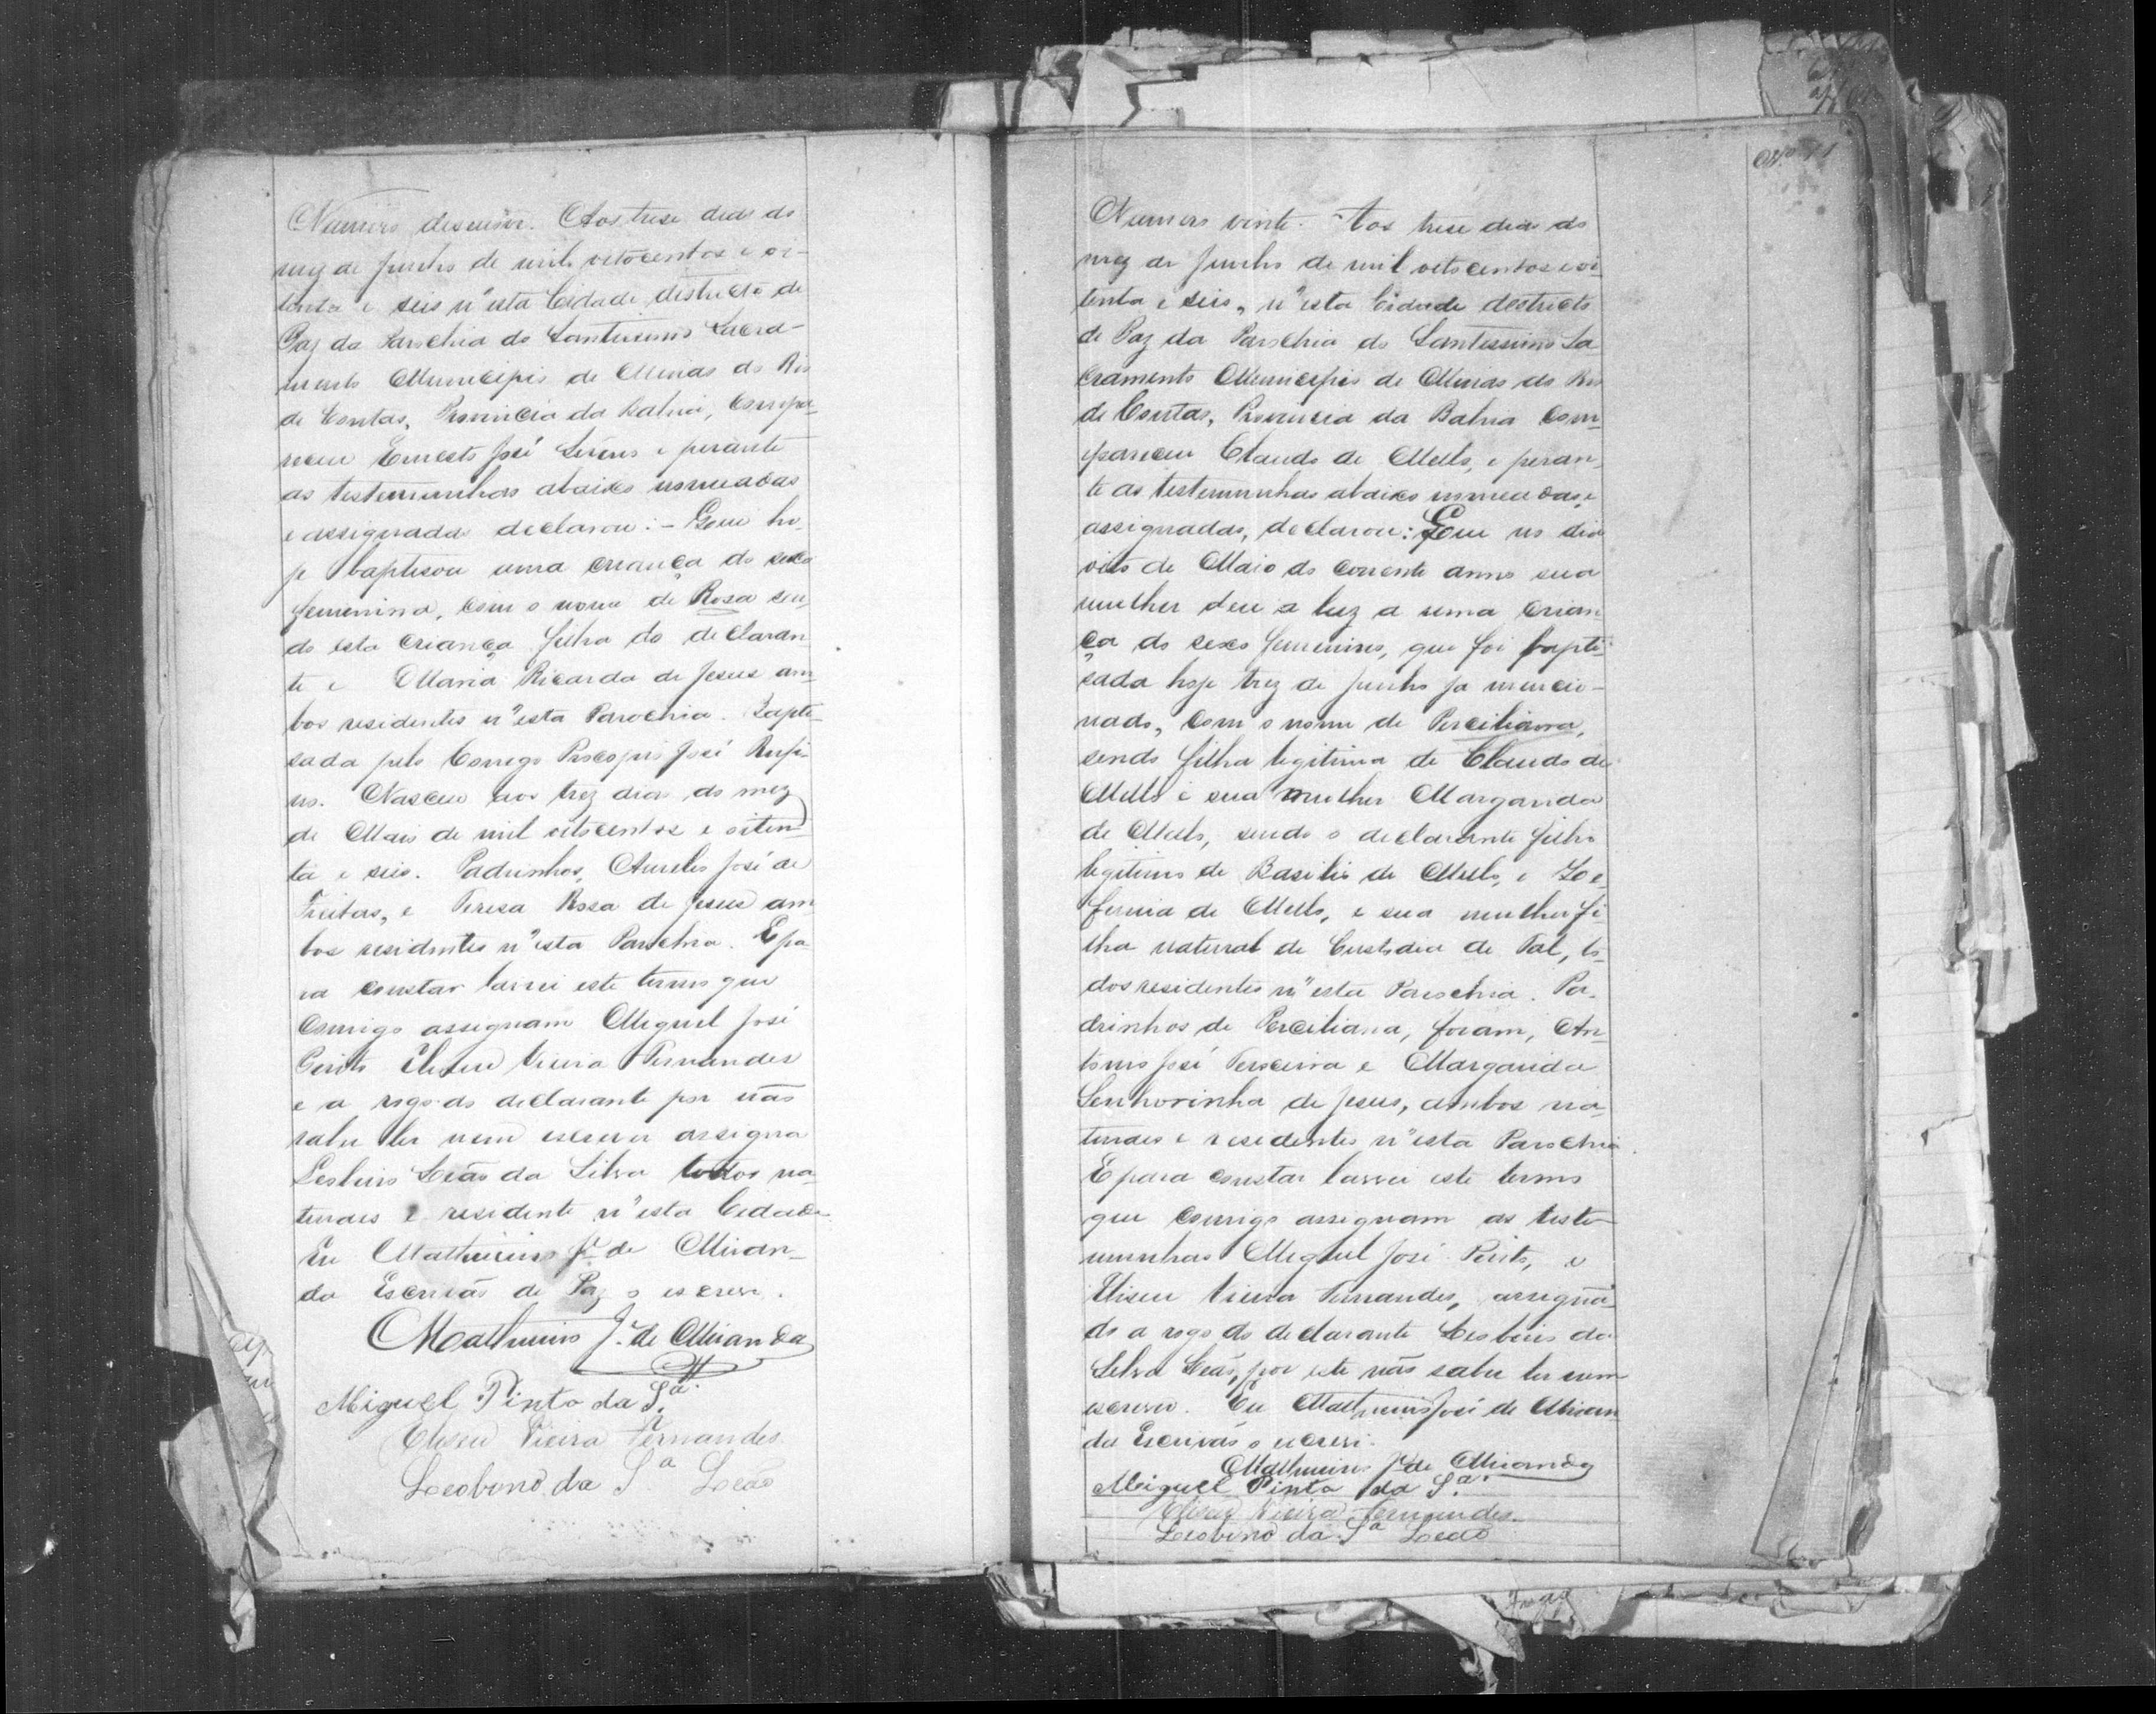 Numero desenove. Aos trese dias do
mez de Junho de mil oitocentos e oi-
tenta e seis n'esta Cidade, districto de
Paz da Parochia do Santissimo Sacra-
mento Municipio de Minas do Rio
de Contas, Provincia da Bahia, compa-
receu Ernesto José Sirino e perante
as testemunhas abaixo nomeadas
e assignadas declarou: - Que ho-
je baptisou uma criança do sexo
femenino, com o nome de Rosa sen-
do esta criança filha do declaran-
te e Maria Ricarda de Jesus am-
bos residentes n'esta Parochia. Bapti-
sada pelo Conego Procopio José Rufi-
no. Nasceu aos trez dias do mez
de Maio de mil oitocentos e oiten-
ta e seis. Padrinhos, Aurelio José de
Freitas, e Teresa Rosa de Jesus am-
bos residentes n'esta Parochia. E pa-
ra constar lavrei este termo que
comigo assignam Miguel José
Pinto Eliseu Vieira Fernandes
e a rogo do declarante por não
saber ler nem escrever assigna
Lesbino Leão da Silva todos na-
turaes e residente n'esta Cidade
Eu Mathuino J.e de Miran-
da Escrivão de Paz o escrevi.
Mathuino J.e de Miranda
Miguel Pinto da S.a
Eliseu Vieira Fernandes
Leobino da S.a Leão
Nº 11
Numero vinte. Aos trese dias do
mez de Junho de mil oitocentos e oi-
tenta e seis, n'esta Cidade destricto
de Paz da Parochia do Santissimo Sa
cramento Municipio de Minas do Rio
de Contas, Provincia da Bahia com-
pareceu Claudo de Mello, e peran-
te as testemunhas abaixo nomeadas, e
assignadas, declarou: Que no dia
oito de Maio do corrente anno sua
mulher deu a luz a uma crian-
ça do sexo femenino, que foi bapti-
sada hoje trez de Junho ja mencio-
nado, com o nome de Perciliana,
sendo filha legitima de Claudo de
Mello e sua mulher Margarida
de Mello, sendo o declarante filho
legitimo de Basilio de Mello, e Ze-
ferina de Mello, e sua mulher fi-
lha natural de Custodia de Tal, to-
dos residentes n'esta Parochia. Pa-
drinhos de Perciliana, foram, An-
tonio José Terceira e Margarida
Senhorinha de Jesus, ambos na-
turaes e residentes n'esta Parochia.
E para constar lavrei este termo
que comigo assignam as teste-
munhas Miguel José Pinto, e
Eliseu Vieira Fernandes, assignan-
do a rogo do declarante Lesbino da
Silva Leão, por este não saber ler nem
escrever. Eu Mathuino José de Miran
da Escrivão o escrevi.
Mathuino J.e de Miranda
Miguel Pinto da S.a
Eliseu Vieira Fernandes.
Leobino da S.a Leão